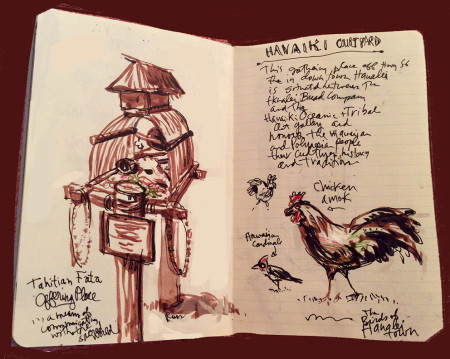 Tahitian Fata
Offering Place
... a means of
communicating
with the
Run
HAVAIKI COURTYARD
This gathering place off Hwy 56
in downtown Hanalei
is situated between The
Hanalei Bread Company
and the
Havaiki Oceanic & Tribal
Art gallery and
honors the Hawaiian
and Polynesian people
their culture, history
and tradition
Chicken
amok
Hawaiian
Cardinal
The
Birds of
Hanalei
Town